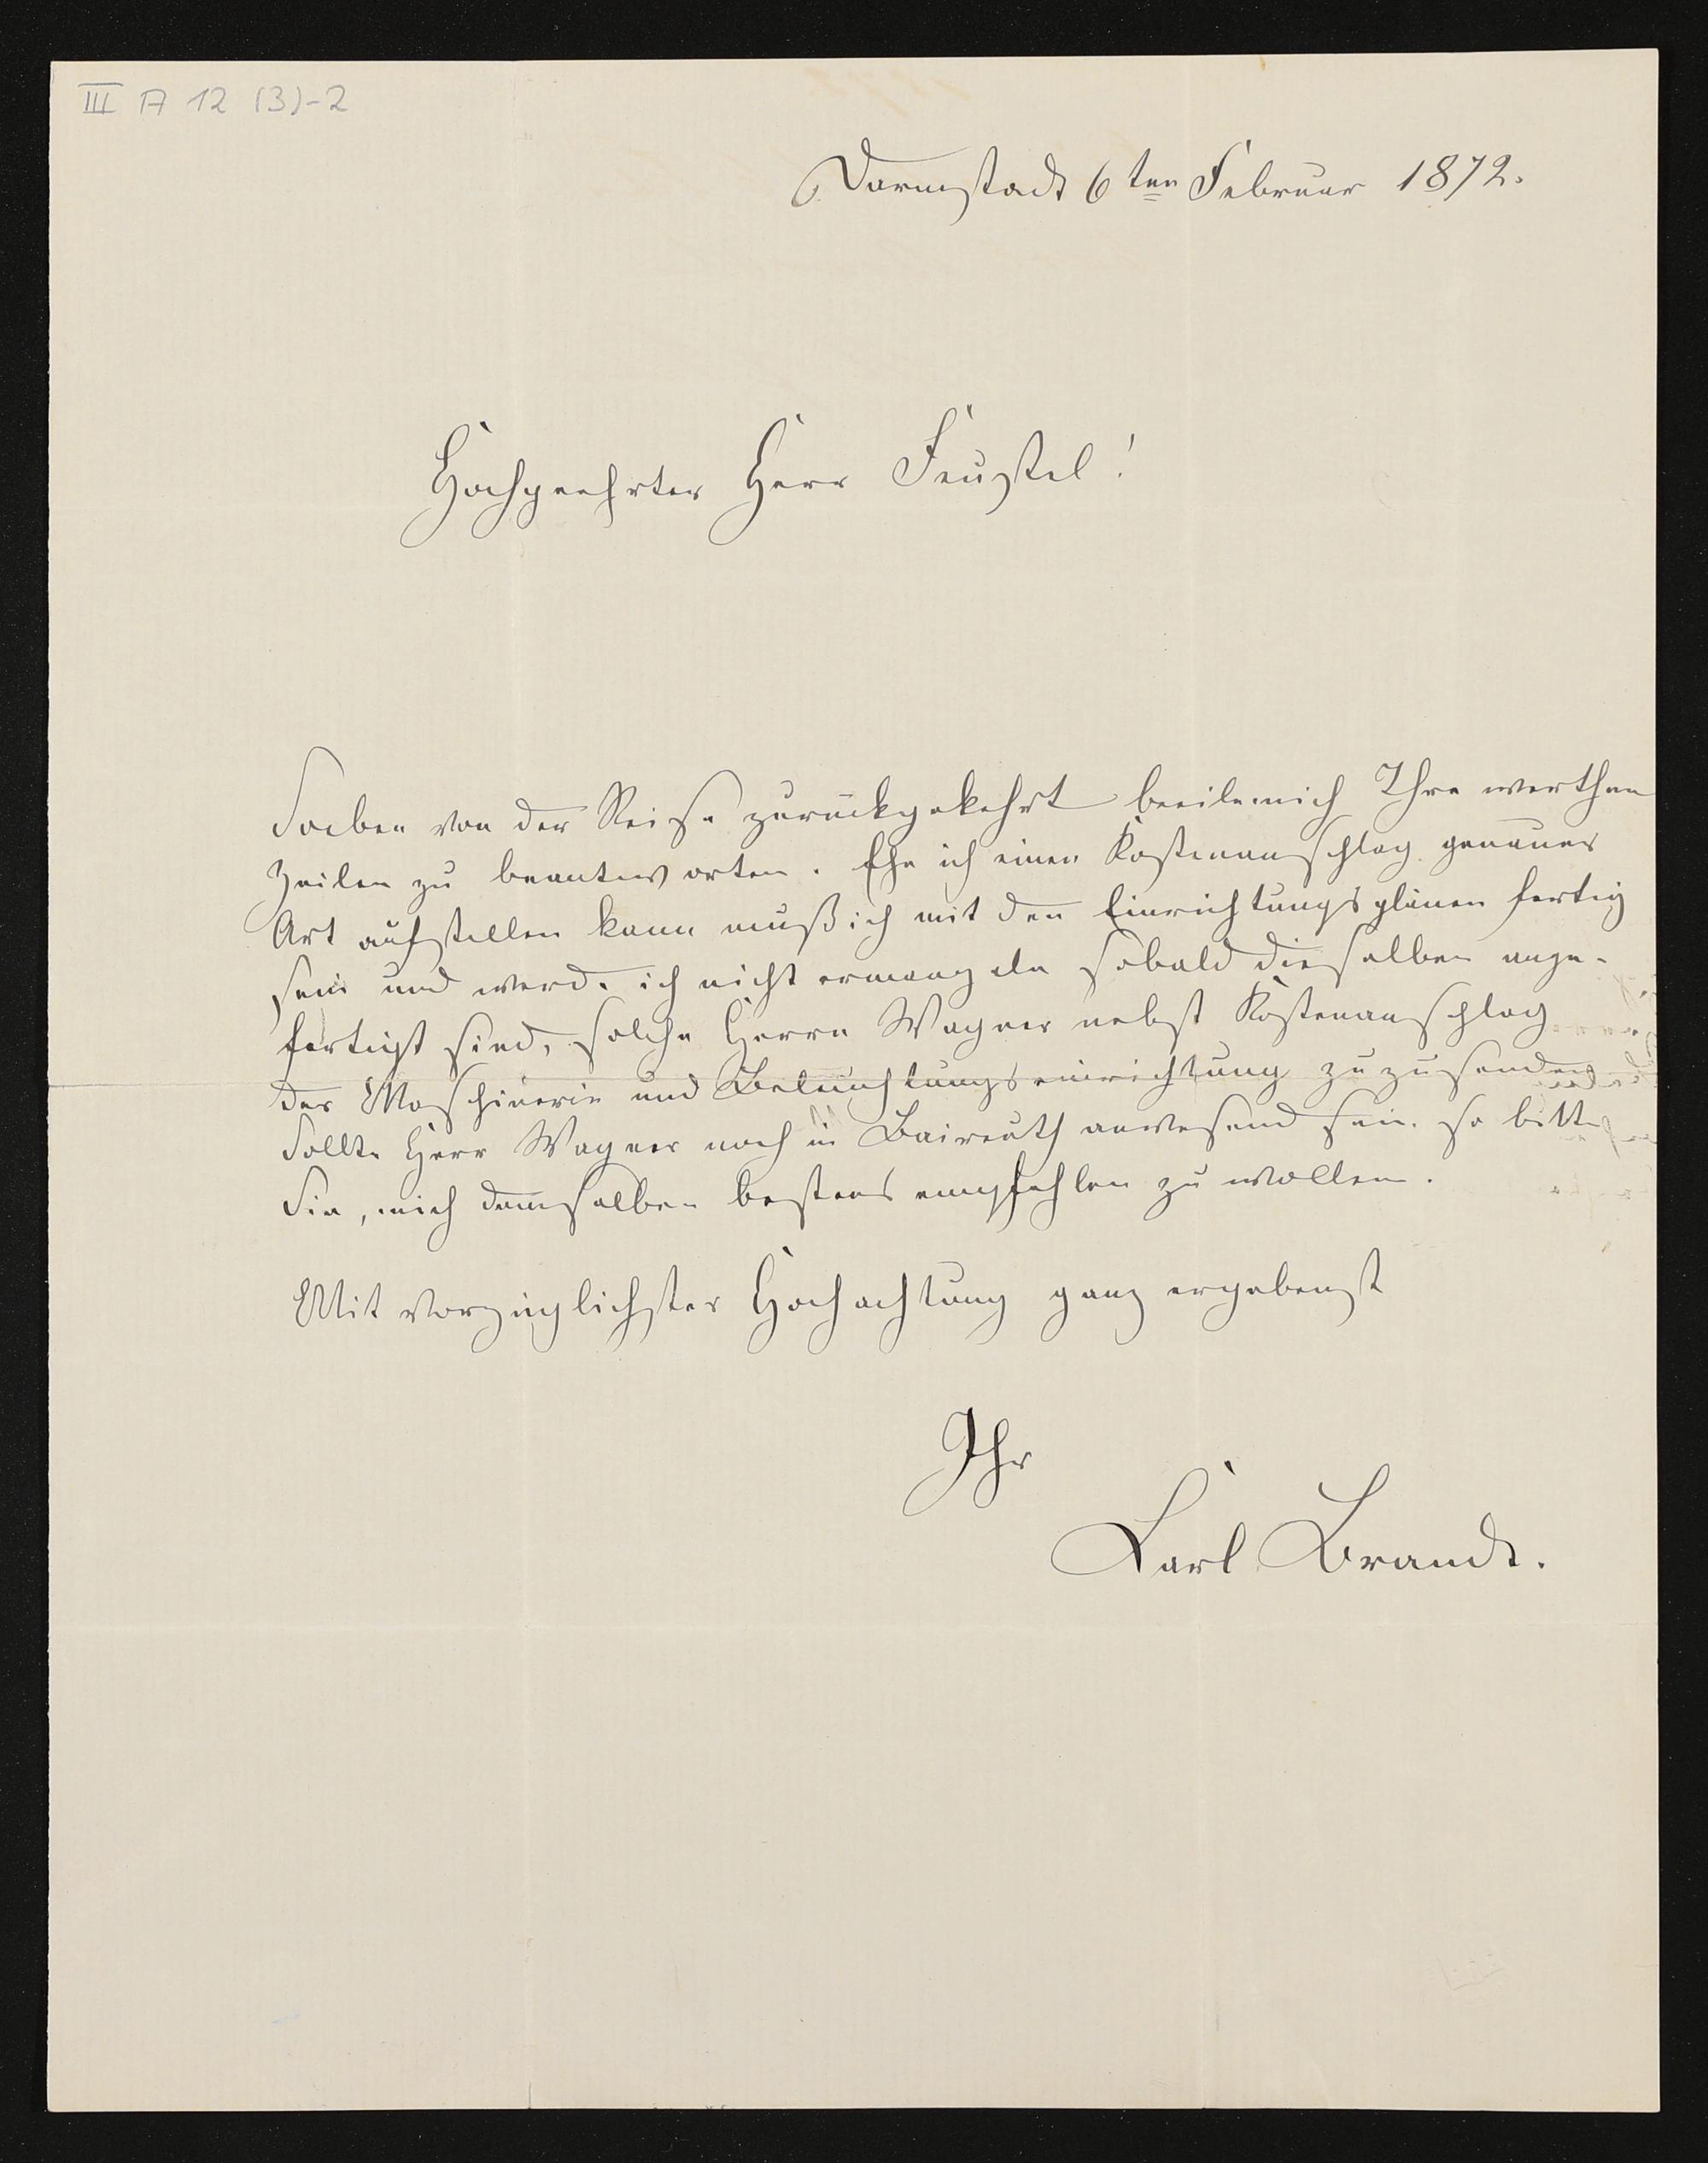 III A 12 (3)-2
Darmstadt 6ten Februar 1872.
Hochgeehrter Herr Feustel!
Soeben von der Reise zurückgekehrt beeile mich Ihre werthen
Zeilen zu beantworten. Ehe ich einen Kostenanschlag genauer
Art aufstellen kann muß ich mit den Einrichtungsplänen fertig
sein und werde ich nicht ermangeln sobald dieselben ange-
fertigt sind, solche Herrn Wagner nebst Kostenanschlag
der Maschinerie und Beleuchtungseinrichtung zuzusenden
Sollte Herr Wagner noch in Baireuth anwesend sein. so bitte
Sie, mich demselben bestens empfehlen zu wollen.
Mit vorzüglichster Hochachtung ganz ergebenst
Ihr
Karl Brandt.